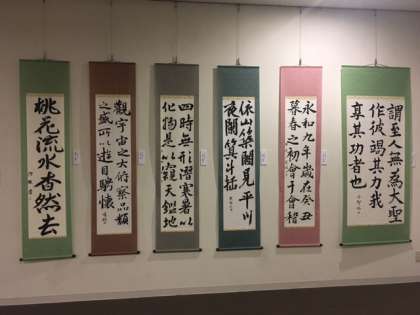 謂至人無為大
作彼竭其力我
享其功者也
永和九年歲在癸丑
暮春之初會于會稽
依山築閣見平川
夜闌箕斗插
四時無形潛寒暑以
化物是以窺天鑑地
觀宇宙之大俯察品類
之盛所以遊目騁懷
桃花流水杳然去